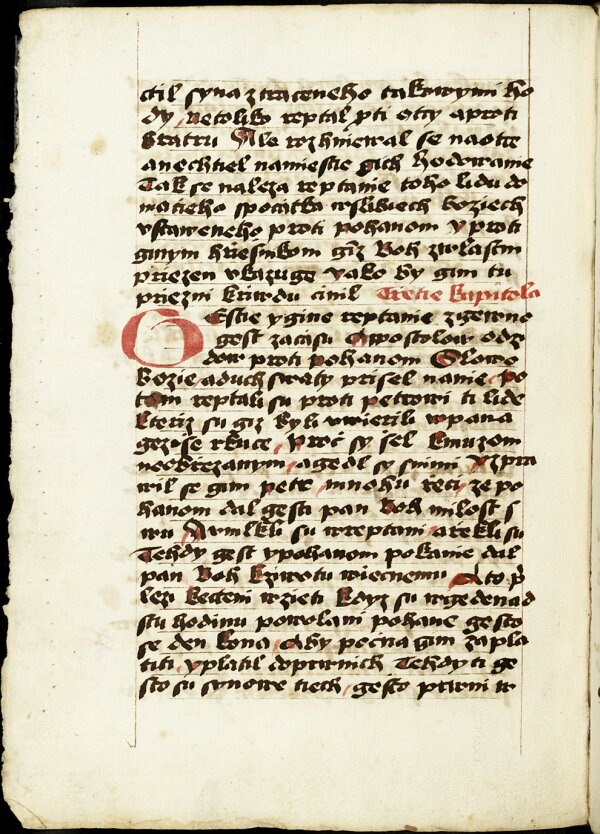 ctil syna ztraceneho takowymi ho
dy, netoliko reptal pti otcy aproti
bratru Ale rozhniewal se naotce
anechtiel namiestie gich hodowanie
Tak se naleza reptanie toho lidu do
matieho spocatka wslibiech boziech
vstaweneho proti pohanom y proti
ginym hriesnikom gizz Boh zwlastni
priezen vkazuge yako by gim tu
priezni kriwdu cinil Tretie kapitola
Gestie ygine reptanie zgewno
gest zacasu Apostolow odz
dow proti pohanom Slowo
bozie aduch swaty prisel nanie, po
tom reptali su proti petrowi ti lide
kteriz su giz byli vwierili wpana
gezise rkuce, proc sy sel kmuzom
neobrezanym, agedl sy snimi Azpra
wil se gim petr, mnohu reci, ze po
hanom dal gesti pan Boh milost s
wu Avmlkli su wreptani arekli su
Tehdy gest ypohanom pokanie dal
pan Boh kziwotu wiecnemu Ato p
lezi kcteni wzieti kdyz su wgedenad
stu hodinu powolani pohane gesto
se den kona, Aby peniz gim zapla
titi, yplatil doprwnich Tehdy ti ge
sto su synowe tiech, gesto prwni w